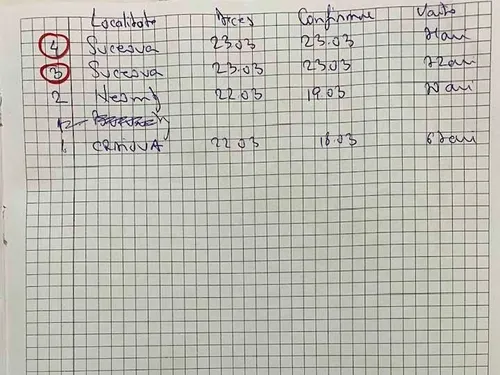 Localitate Deces Confirmare Varsta
4 Suceava 23.03 23.03 71 ani
3 Suceava 23.03 23.03 72 ani
2 Neamț 22.03 19.03 70 ani
12
1. CRAIOVA 22.03 18.03 67 ani